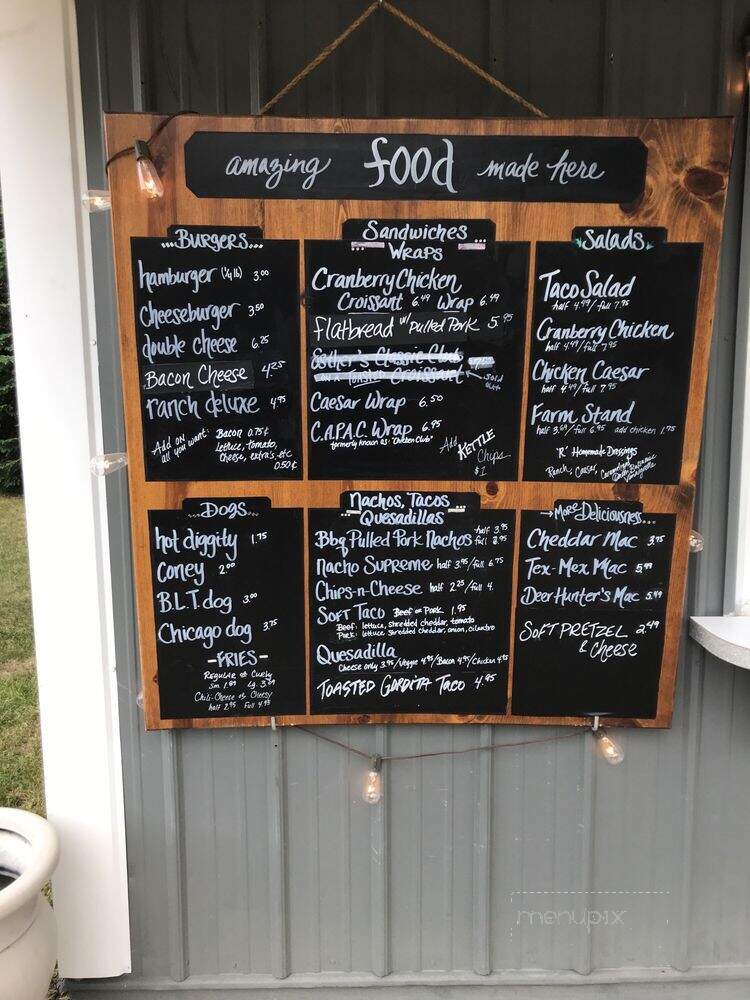 amazing food made here
Burgers...
hamburger (1/4 lb) 3.00
Cheeseburger 3.50
double cheese 6.25
Bacon Cheese 4.25
ranch deluxe 4.95
Add on all you want: Bacon 0.75¢
lettuce, tomato,
cheese, extra's, etc
0.50¢
Sandwiches
Wraps
Cranberry Chicken
Croissant 6.49 Wrap 6.49
Flatbread w/ Pulled Pork 5.95
Esther's Classic Club
on a Toasted Croissant
Sold out
Caesar Wrap 6.50
C.A.P.A.C. Wrap 6.95
formerly known as "Chicken Club"
Add KETTLE
Chips
$1
Salads
Taco Salad
half 4.99/full 7.95
Cranberry Chicken
half 4.99/full 7.95
Chicken Caesar
half 4.99/full 7.95
Farm Stand
half 3.69/full 6.95 add chicken 1.75
'R' Homemade Dressings
Ranch, Caesar,
Vinaigrette
...Dogs...
hot diggity 1.75
Coney 2.00
B.L.T. dog 3.00
Chicago dog 3.75
-FRIES-
Regular or Curly
Sm. 1.89 Lg. 3.09
Chili-Cheese or Cheesy
half 2.95 Full 4.95
Nachos, Tacos
Quesadillas
Bbq Pulled Pork Nachos half 3.95 full 8.95
Nacho Supreme half 3.95/full 6.75
Chips-n-Cheese half 2.25/full 4.
Soft Taco Beef or Pork 1.95
Beef: lettuce, shredded cheddar, tomato
Pork: lettuce shredded cheddar, onion, cilantro
Quesadilla
Cheese only 3.95/Veggie 4.95/Bacon 4.95/Chicken 4.95
TOASTED GORDITA TACO 4.95
→More Deliciousness...
Cheddar Mac 3.75
Tex-Mex Mac 5.99
Deer Hunter's Mac 5.99
SOFT PRETZEL 2.49
& Cheese
menupix